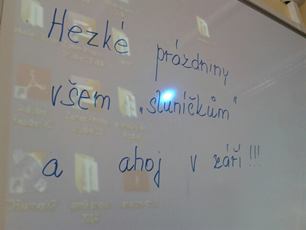 Hezké prázdniny
všem „sluníčkům“
a ahoj v září!!!